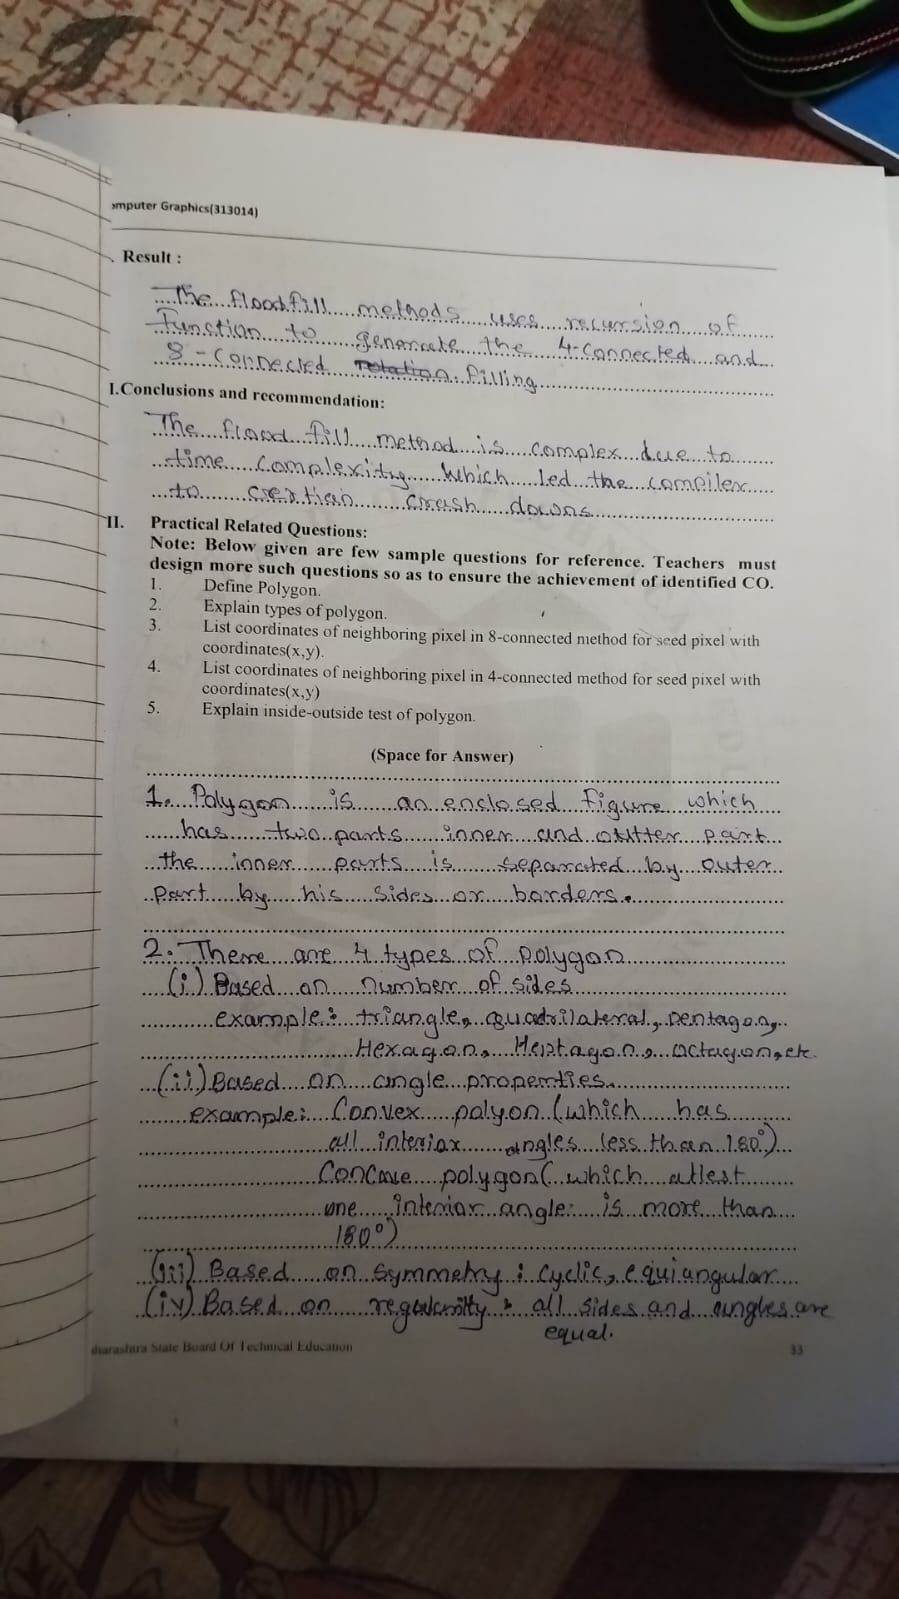 omputer Graphics(313014)
Result :
The floodfill methods uses recursion of
function to generate the 4-connected and
8-connected rotation filling
I.Conclusions and recommendation:
The flood fill method is complex due to
time complexity which led the compiler
to certian crash downs
II. Practical Related Questions:
Note: Below given are few sample questions for reference. Teachers must
design more such questions so as to ensure the achievement of identified CO.
1. Define Polygon.
2. Explain types of polygon.
3. List coordinates of neighboring pixel in 8-connected method for seed pixel with
coordinates(x,y).
4. List coordinates of neighboring pixel in 4-connected method for seed pixel with
coordinates(x,y)
5. Explain inside-outside test of polygon.
(Space for Answer)
1. Polygon is an enclosed figure which
has two parts inner and outter part
the inner parts is separated by outer
part by his sides or borders.
2. There are 4 types of polygon
(i) Based on number of sides
example: triangle, quadrilateral, pentagon,
Hexagon, Heptagon, octagon, etc.
(ii) Based on angle properties.
example: Convex polyon (which has
all interior angles less than 180°)
Concave polygon (which atlest
one interior angle is more than
180°)
(iii) Based on symmetry : cyclic, equiangular
(iv) Based on regularity : all sides and angles are
equal.
harashtra State Board Of Technical Education 33